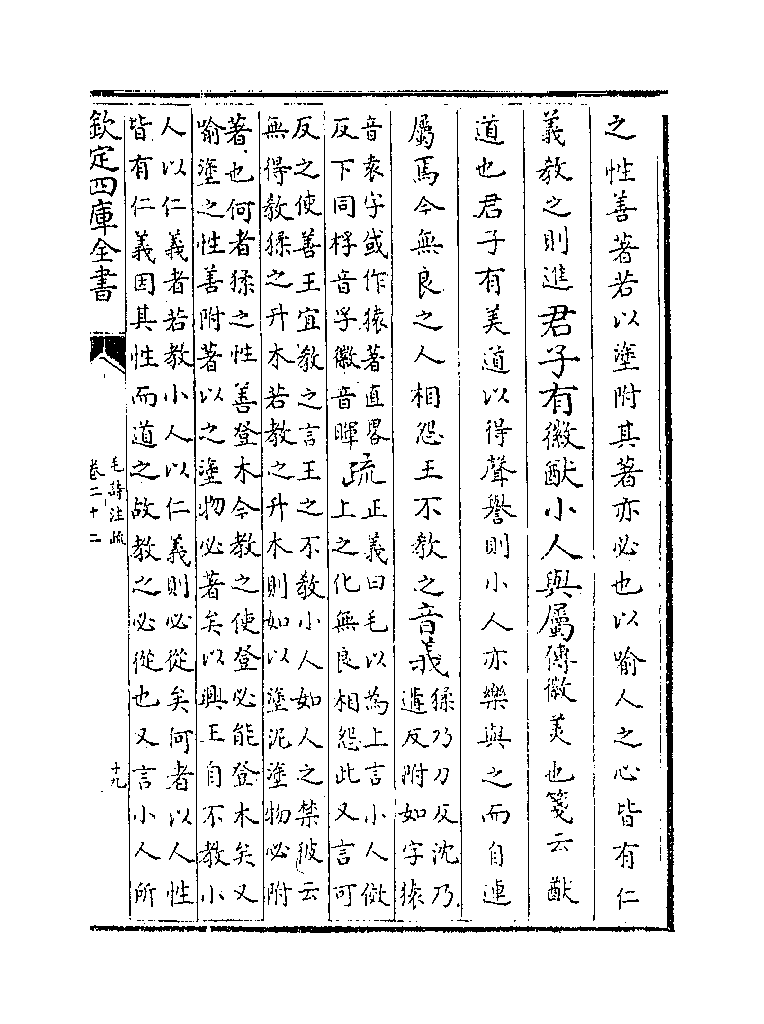 之性善著若以塗附其著亦必也以喻人之心皆有仁
義教之則進君子有徽猷小人與屬傳徽美也箋云猷
道也君子有美道以得聲譽則小人亦樂與之而自連
屬焉今無良之人相怨王不教之音義猱乃刀反沈乃
遘反附如字猿
音袁字或作猨著直畧
反下同桴音孚徽音暉疏正義曰毛以為上言小人傚
上之化無良相怨此又言可
反之使善王宜教之言王之不教小人如人之禁彼云
無得教猱之升木若教之升木則如以塗泥塗物必附
著也何者猱之性善登木今教之使登必能登木矣又
喻塗之性善附著以之塗物必著矣以興王自不教小
人以仁義者若教小人以仁義則必從矣何者以人性
皆有仁義因其性而道之故教之必從也又言小人所
欽定四庫全書
毛詩注疏
卷二十二
十九